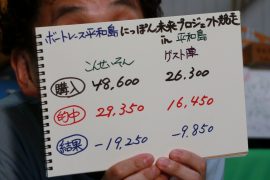 ボートレース平和島 にっぽん未来プロジェクト競走
in 平和島
こんせいそん ゲスト軍
購入 48,600 26,300
的中 29,350 16,450
結果 -19,250 -9,850